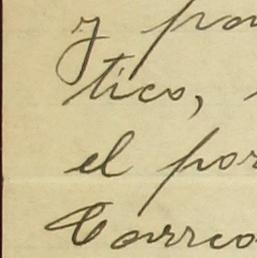 y
tico,
el por
Correo